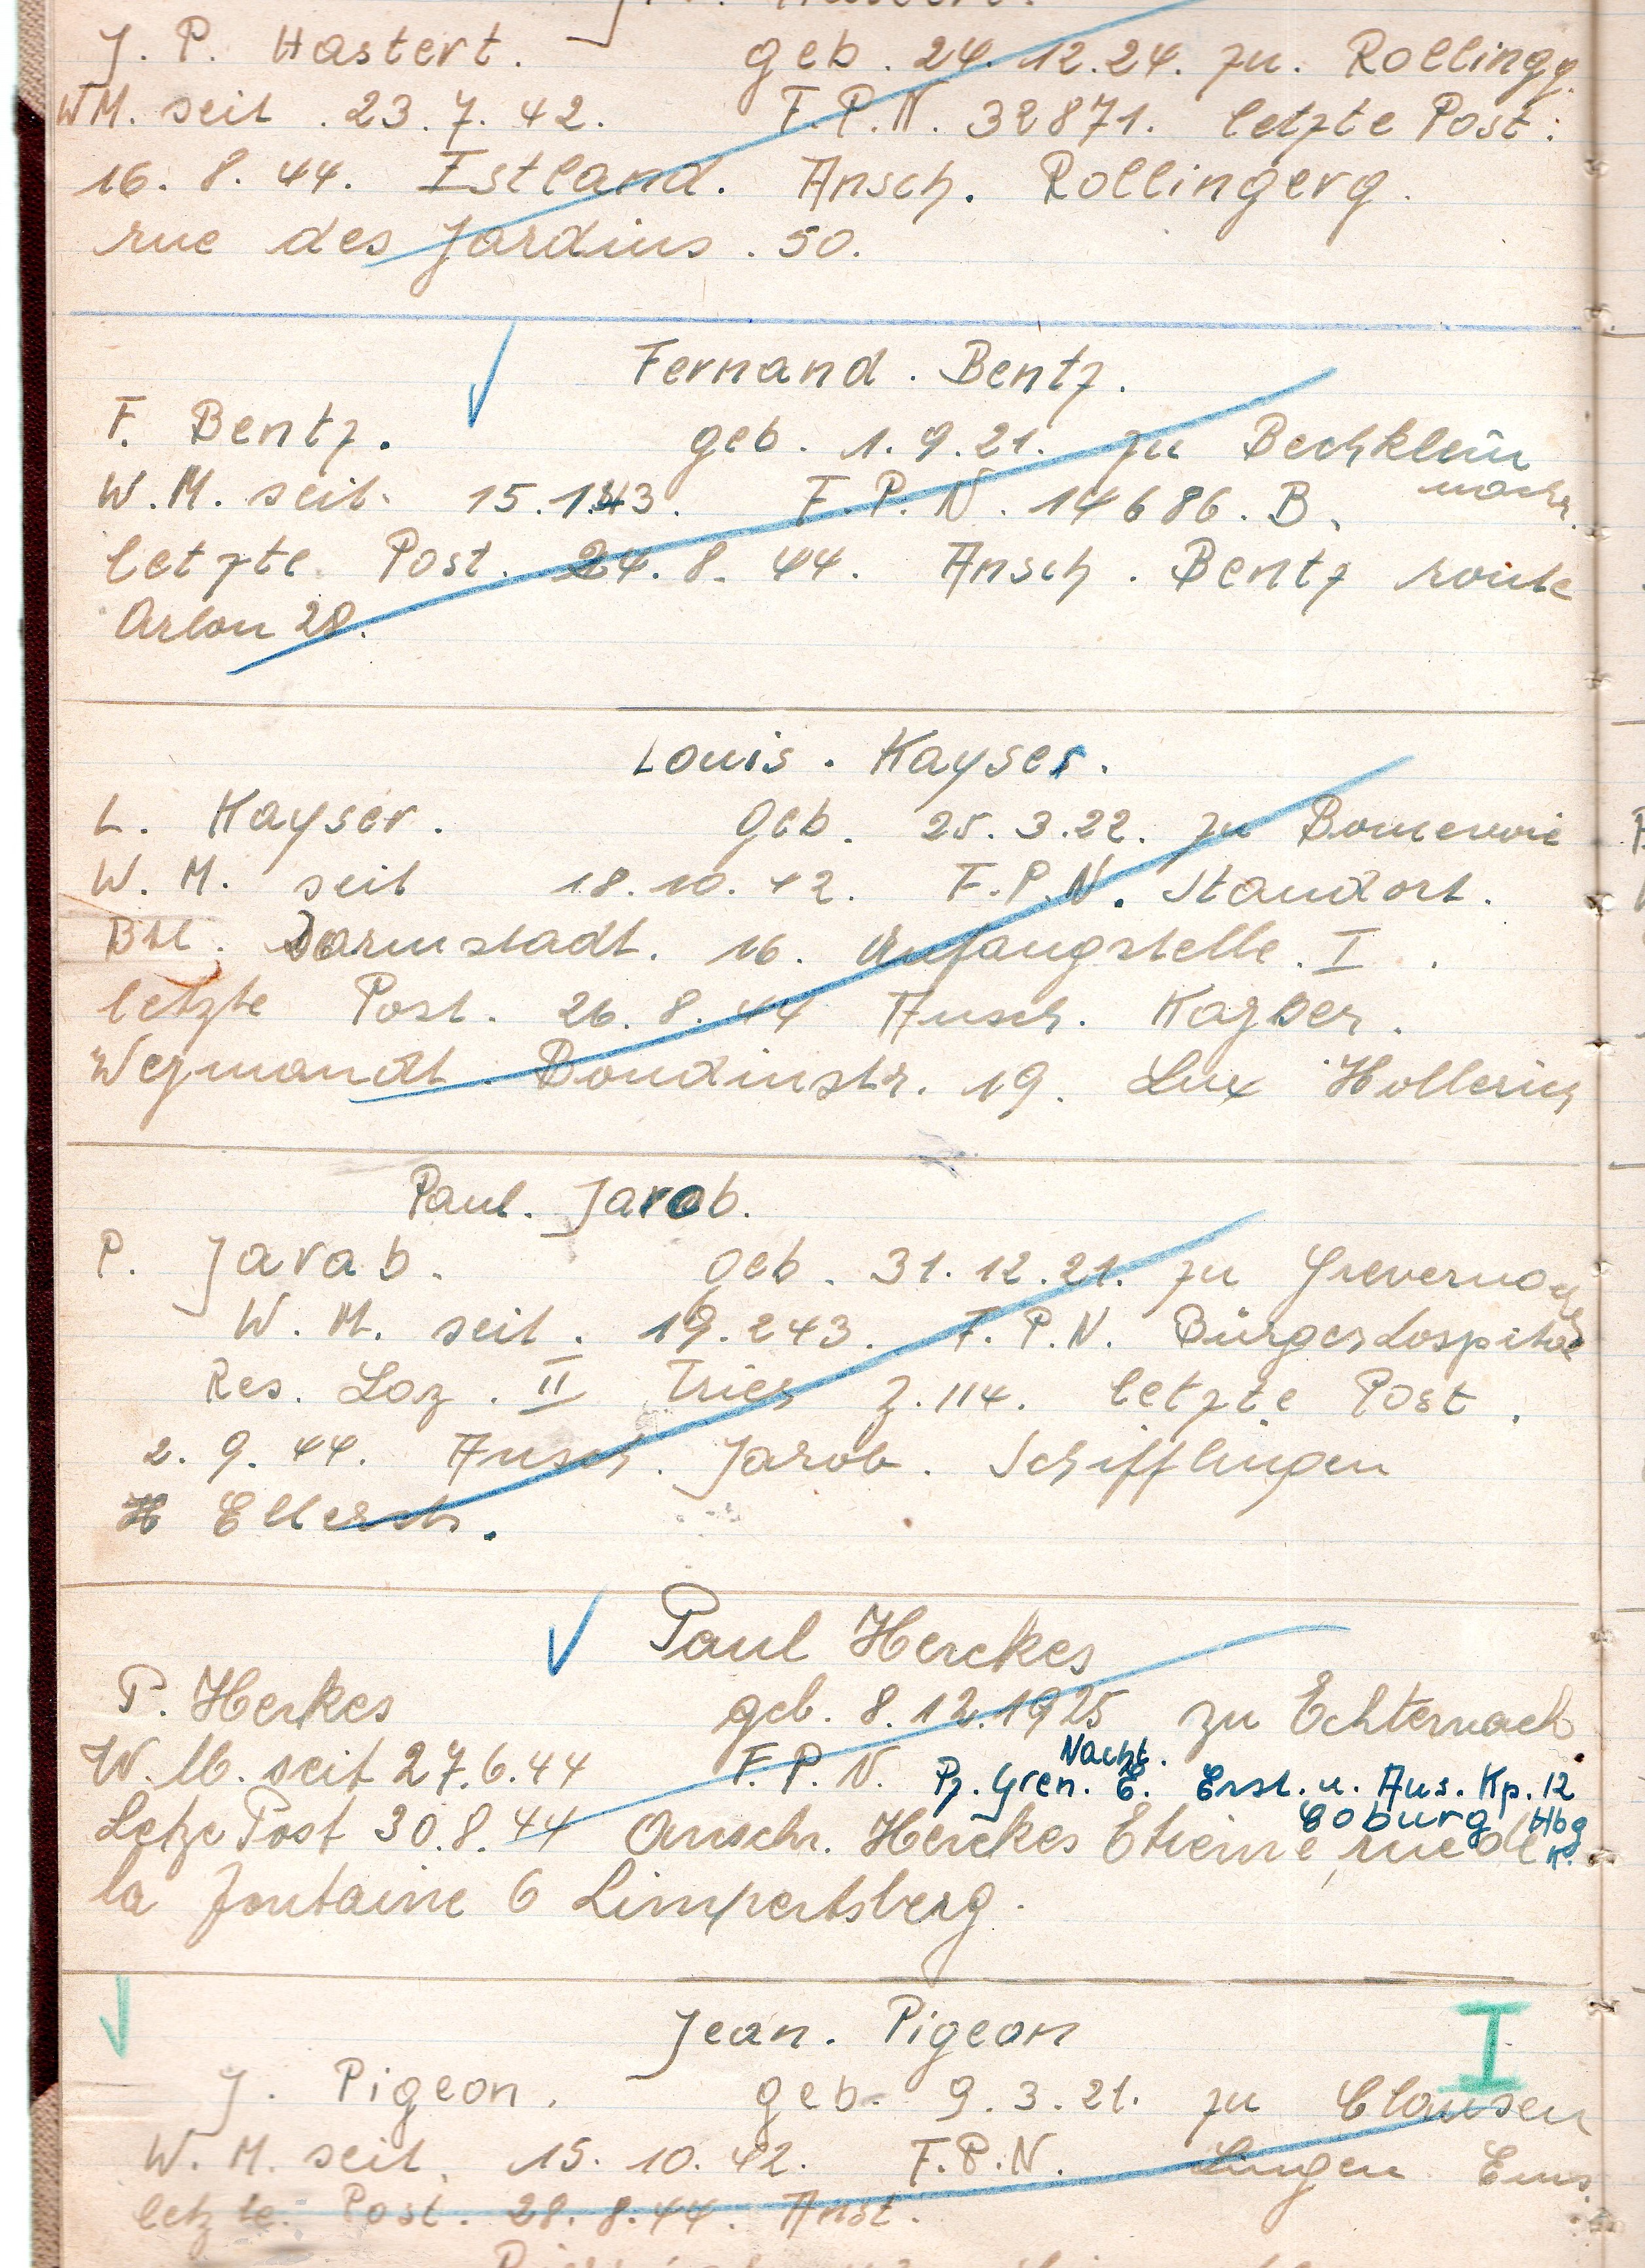 J. P. Hastert. geb. 24.12.24. zu. Rollingg.
WM. seit. 23.7.42. F.P.N. 32871. letzte Post:
16.8.44. Estland. Ansch. Rollingerg.
rue des Jardins. 50.
Fernand. Bentz.
F. Bentz. geb. 1.9.21. zu Bechklein
macher.
W.M. seit. 15.1.43. F.P.N. 14686. B.
letzte Post. 24.8.44. Ansch. Bentz route
Arlon 28.
Louis. Kayser.
L. Kayser. geb. 25.3.22. zu
W.M. seit 18.10.42. F.P.N. Standort.
Btl. Darmstadt. 16. Anfangstelle. I.
letzte Post. 26.8.44 Ansch. Kayser.
Weymandt. Boudinstr. 19. Lux Hollerich
Paul. Jarob.
P. Jarab. geb. 31.12.21. zu Grevernach
W.M. seit. 19.243. F.P.N. Bürgerhospital
Res. Laz. II Trier Z. 114. letzte Post.
2.9.44. Ansch. Jarob. Schifflingen
Ellerstr.
Paul Herckes
P. Herkes geb. 8.12.1925 zu Echternach
Nacht.
W.M. seit 27.6.44 F.P.N. Pz. Gren. E. Ers. u. Aus. Kp. 12
Coburg Hbg
K.
Letze Post 30.8.44 Anschr. Herckes Etienne, rue de
la fontaine 6 Limpertsberg.
Jean. Pigeon
I
J. Pigeon. geb. 9.3.21. zu Clausen
W.M. seit. 15.10.42. F.P.N. Lingen Ems.
letzte. Post. 28.8.44. Anst.